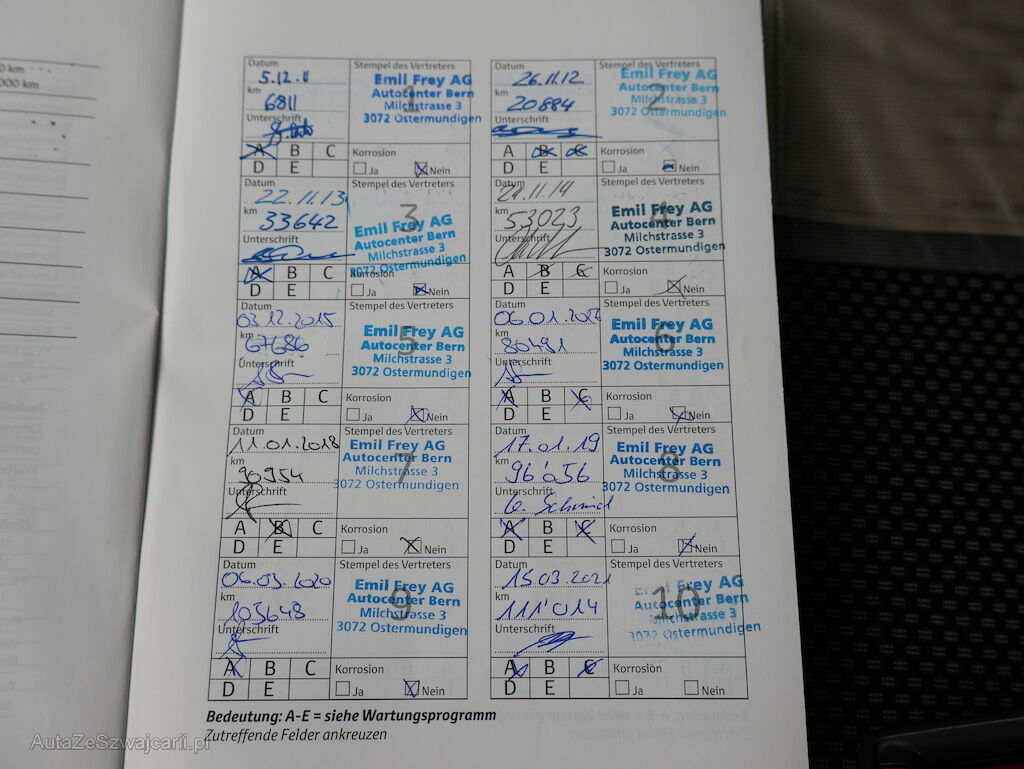 0 km
000 km
Datum
5.12.11
km
6811
Unterschrift
Stempel des Vertreters
1
Emil Frey AG
Autocenter Bern
Milchstrasse 3
3072 Ostermundigen
A B C
D E
Korrosion
Ja Nein
Datum
26.11.12
km
20884
Stempel des Vertreters
2
Emil Frey AG
Autocenter Bern
Milchstrasse 3
3072 Ostermundigen
A B C
D E
Korrosion
Ja Nein
Datum
22.11.13
km
33642
Unterschrift
Stempel des Vertreters
3
Emil Frey AG
Autocenter Bern
Milchstrasse 3
3072 Ostermundigen
A B C
D E
Korrosion
Ja Nein
Datum
km
53023
Unterschrift
Stempel des Vertreters
4
Emil Frey AG
Autocenter Bern
Milchstrasse 3
3072 Ostermundigen
A B C
D E
Korrosion
Ja Nein
Datum
03.12.2015
km
67686
Unterschrift
Stempel des Vertreters
5
Emil Frey AG
Autocenter Bern
Milchstrasse 3
3072 Ostermundigen
A B C
D E
Korrosion
Ja Nein
Datum
km
80491
Unterschrift
Stempel des Vertreters
6
Emil Frey AG
Autocenter Bern
Milchstrasse 3
3072 Ostermundigen
A B C
D E
Korrosion
Ja Nein
Datum
11.01.2018
km
90954
Unterschrift
Stempel des Vertreters
7
Emil Frey AG
Autocenter Bern
Milchstrasse 3
3072 Ostermundigen
A B C
D E
Korrosion
Ja Nein
Datum
17.01.19
km
96'056
Unterschrift
Schmid
Stempel des Vertreters
8
Emil Frey AG
Autocenter Bern
Milchstrasse 3
3072 Ostermundigen
A B C
D E
Korrosion
Ja Nein
Datum
06.03.2020
km
103648
Unterschrift
Stempel des Vertreters
9
Emil Frey AG
Autocenter Bern
Milchstrasse 3
3072 Ostermundigen
A B C
D E
Korrosion
Ja Nein
Datum
15.03.2021
km
111'014
Unterschrift
Stempel des Vertreters
10
Emil Frey AG
Autocenter Bern
Milchstrasse 3
3072 Ostermundigen
A B C
D E
Korrosion
Ja Nein
Bedeutung: A-E = siehe Wartungsprogramm
Zutreffende Felder ankreuzen
AutaZeSzwajcarii.pl